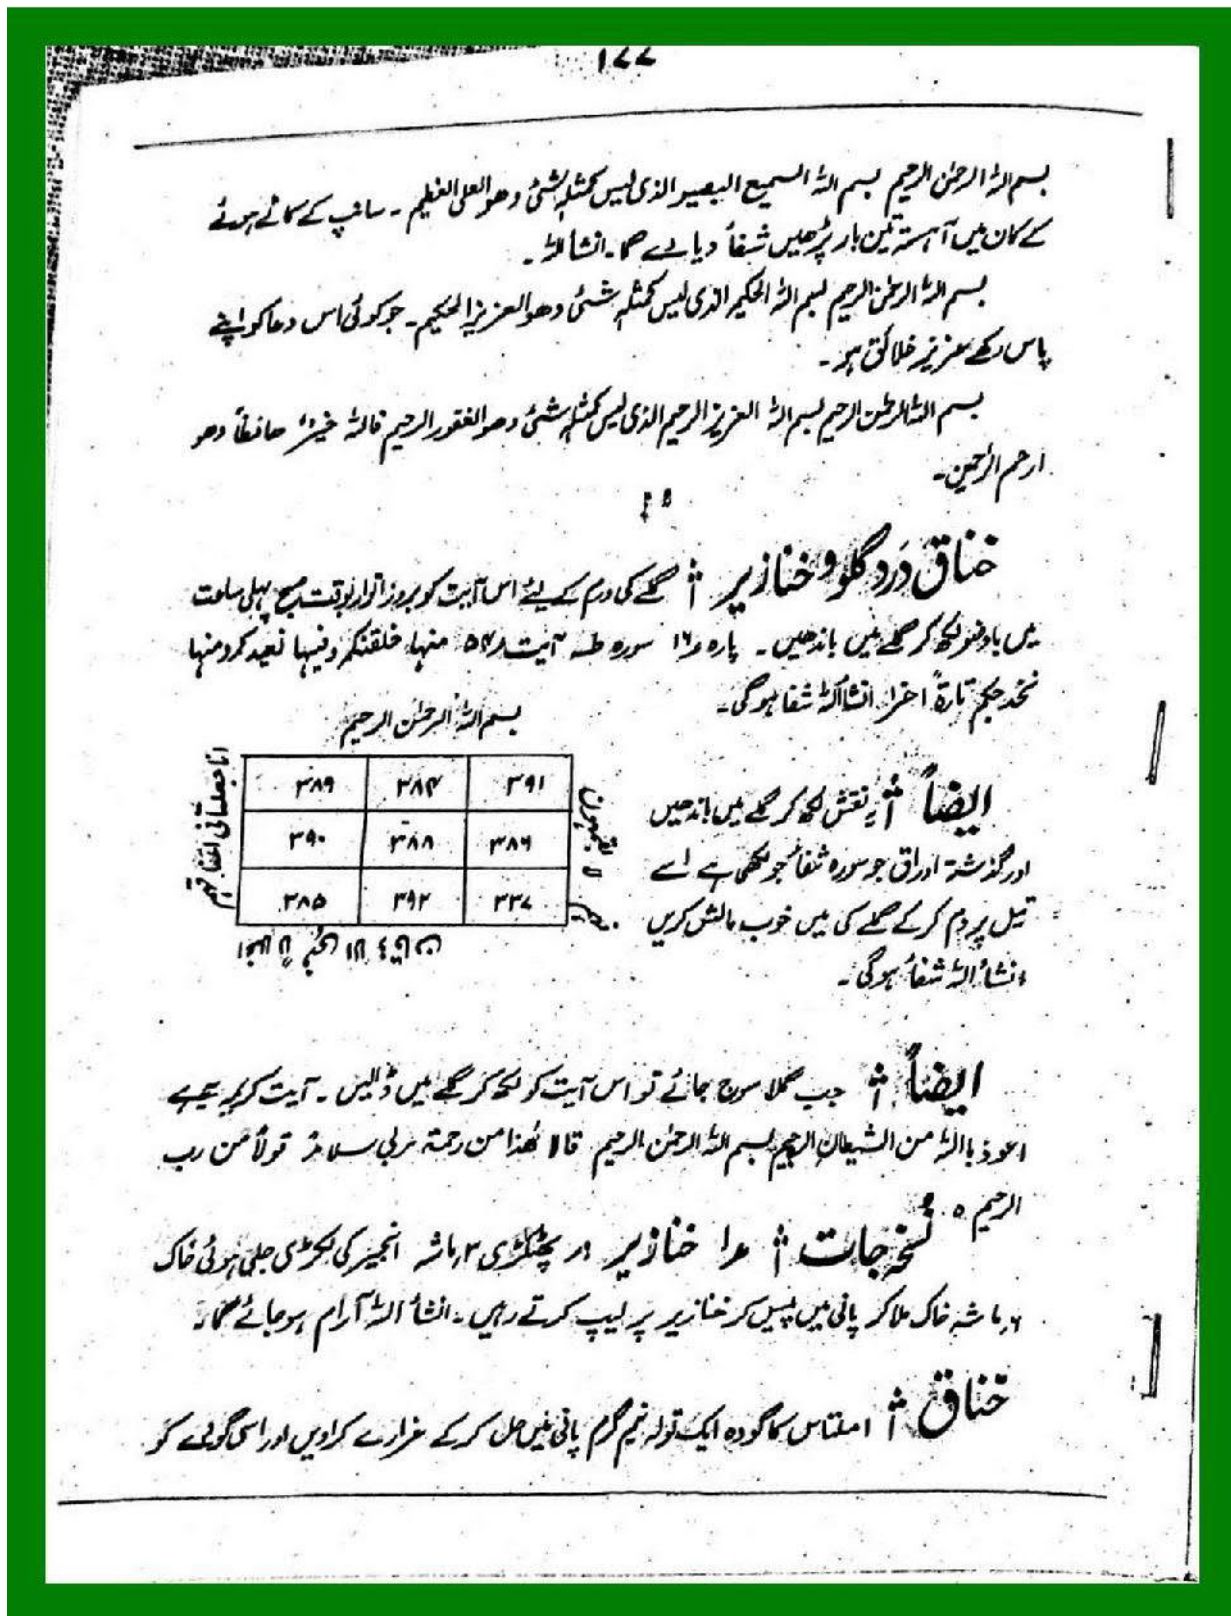 ۱۷۷
بسم اللہ الرحمٰن الرحیم بسم اللہ السمیع البصیر الذی لیس کمثلہ شئی وھو العلی العظیم ۔ سانپ کے کاٹے ہوئے
کے کان میں آہستہ تین بار پڑھیں شفأ دیاوے گا۔ انشااللہ ۔
بسم اللہ الرحمٰن الرحیم بسم اللہ الحکیم الذی لیس کمثلہ شئی وھو العزیز الحکیم ۔ جو کوئی اس دعا کو اپنے
پاس رکھے عزیز خلائق ہو ۔
بسم اللہ الرحمٰن الرحیم بسم اللہ العزیز الرحیم الذی لیس کمثلہ شئی وھو الغفور الرحیم فاللہ خیرٌ حافظاً وھو
ارحم الرٰحمین۔
خناق دَرد گلو و خنازیر گلے کی ورم کے لئے اس آیت کو بروز اتوار بوقت صبح پہلی ساعت
میں باوضو لکھ کر گلے میں باندھیں ۔ پارہ ۱۶ سورہ طہ آیت ۵۴ منہا خلقنٰکم وفیہا نعیدکم ومنہا
نخرجکم تارۃً اخرٰا انشأاللہ شفا ہوگی۔
بسم اللہ الرحمٰن الرحیم
۳۹۱ ۳۸۴ ۳۸۹
۳۸۶ ۳۸۸ ۳۹۰
۳۳۷ ۳۹۲ ۳۸۵
ایضاً یہ نقش لکھ کر گلے میں باندھیں
اور گذشتہ اوراق جو سورہ شفأ جو لکھی ہے اسے
تیل پر دم کرکے گلے کی میں خوب مالش کریں
انشأ اللہ شفأ ہوگی ۔
ایضاً جب گلا سوج جائے تو اس آیت کو لکھ کر گلے میں ڈالیں ۔ آیت کریمہ یہ ہے
اعوذ بااللہ من الشیطان الرجیم بسم اللہ الرحمٰن الرحیم قالا ھٰذا من رحمۃ ربی سلامٌ قولاً من رب
الرحیم ہ
نسخہ جات ۱ خنازیر پھٹکڑی ۳ ماشہ انجیر کی لکڑی جلی ہوئی خاک
۶ ماشہ خاک ملا کر پانی میں پیس کر خنازیر پر لیپ کرتے رہیں ۔ انشأ اللہ آرام ہو جائے گا۔
خناق املتاس کا گودہ ایک تولہ نیم گرم پانی میں حل کرکے غرارے کراویں اور اسی گودے کو